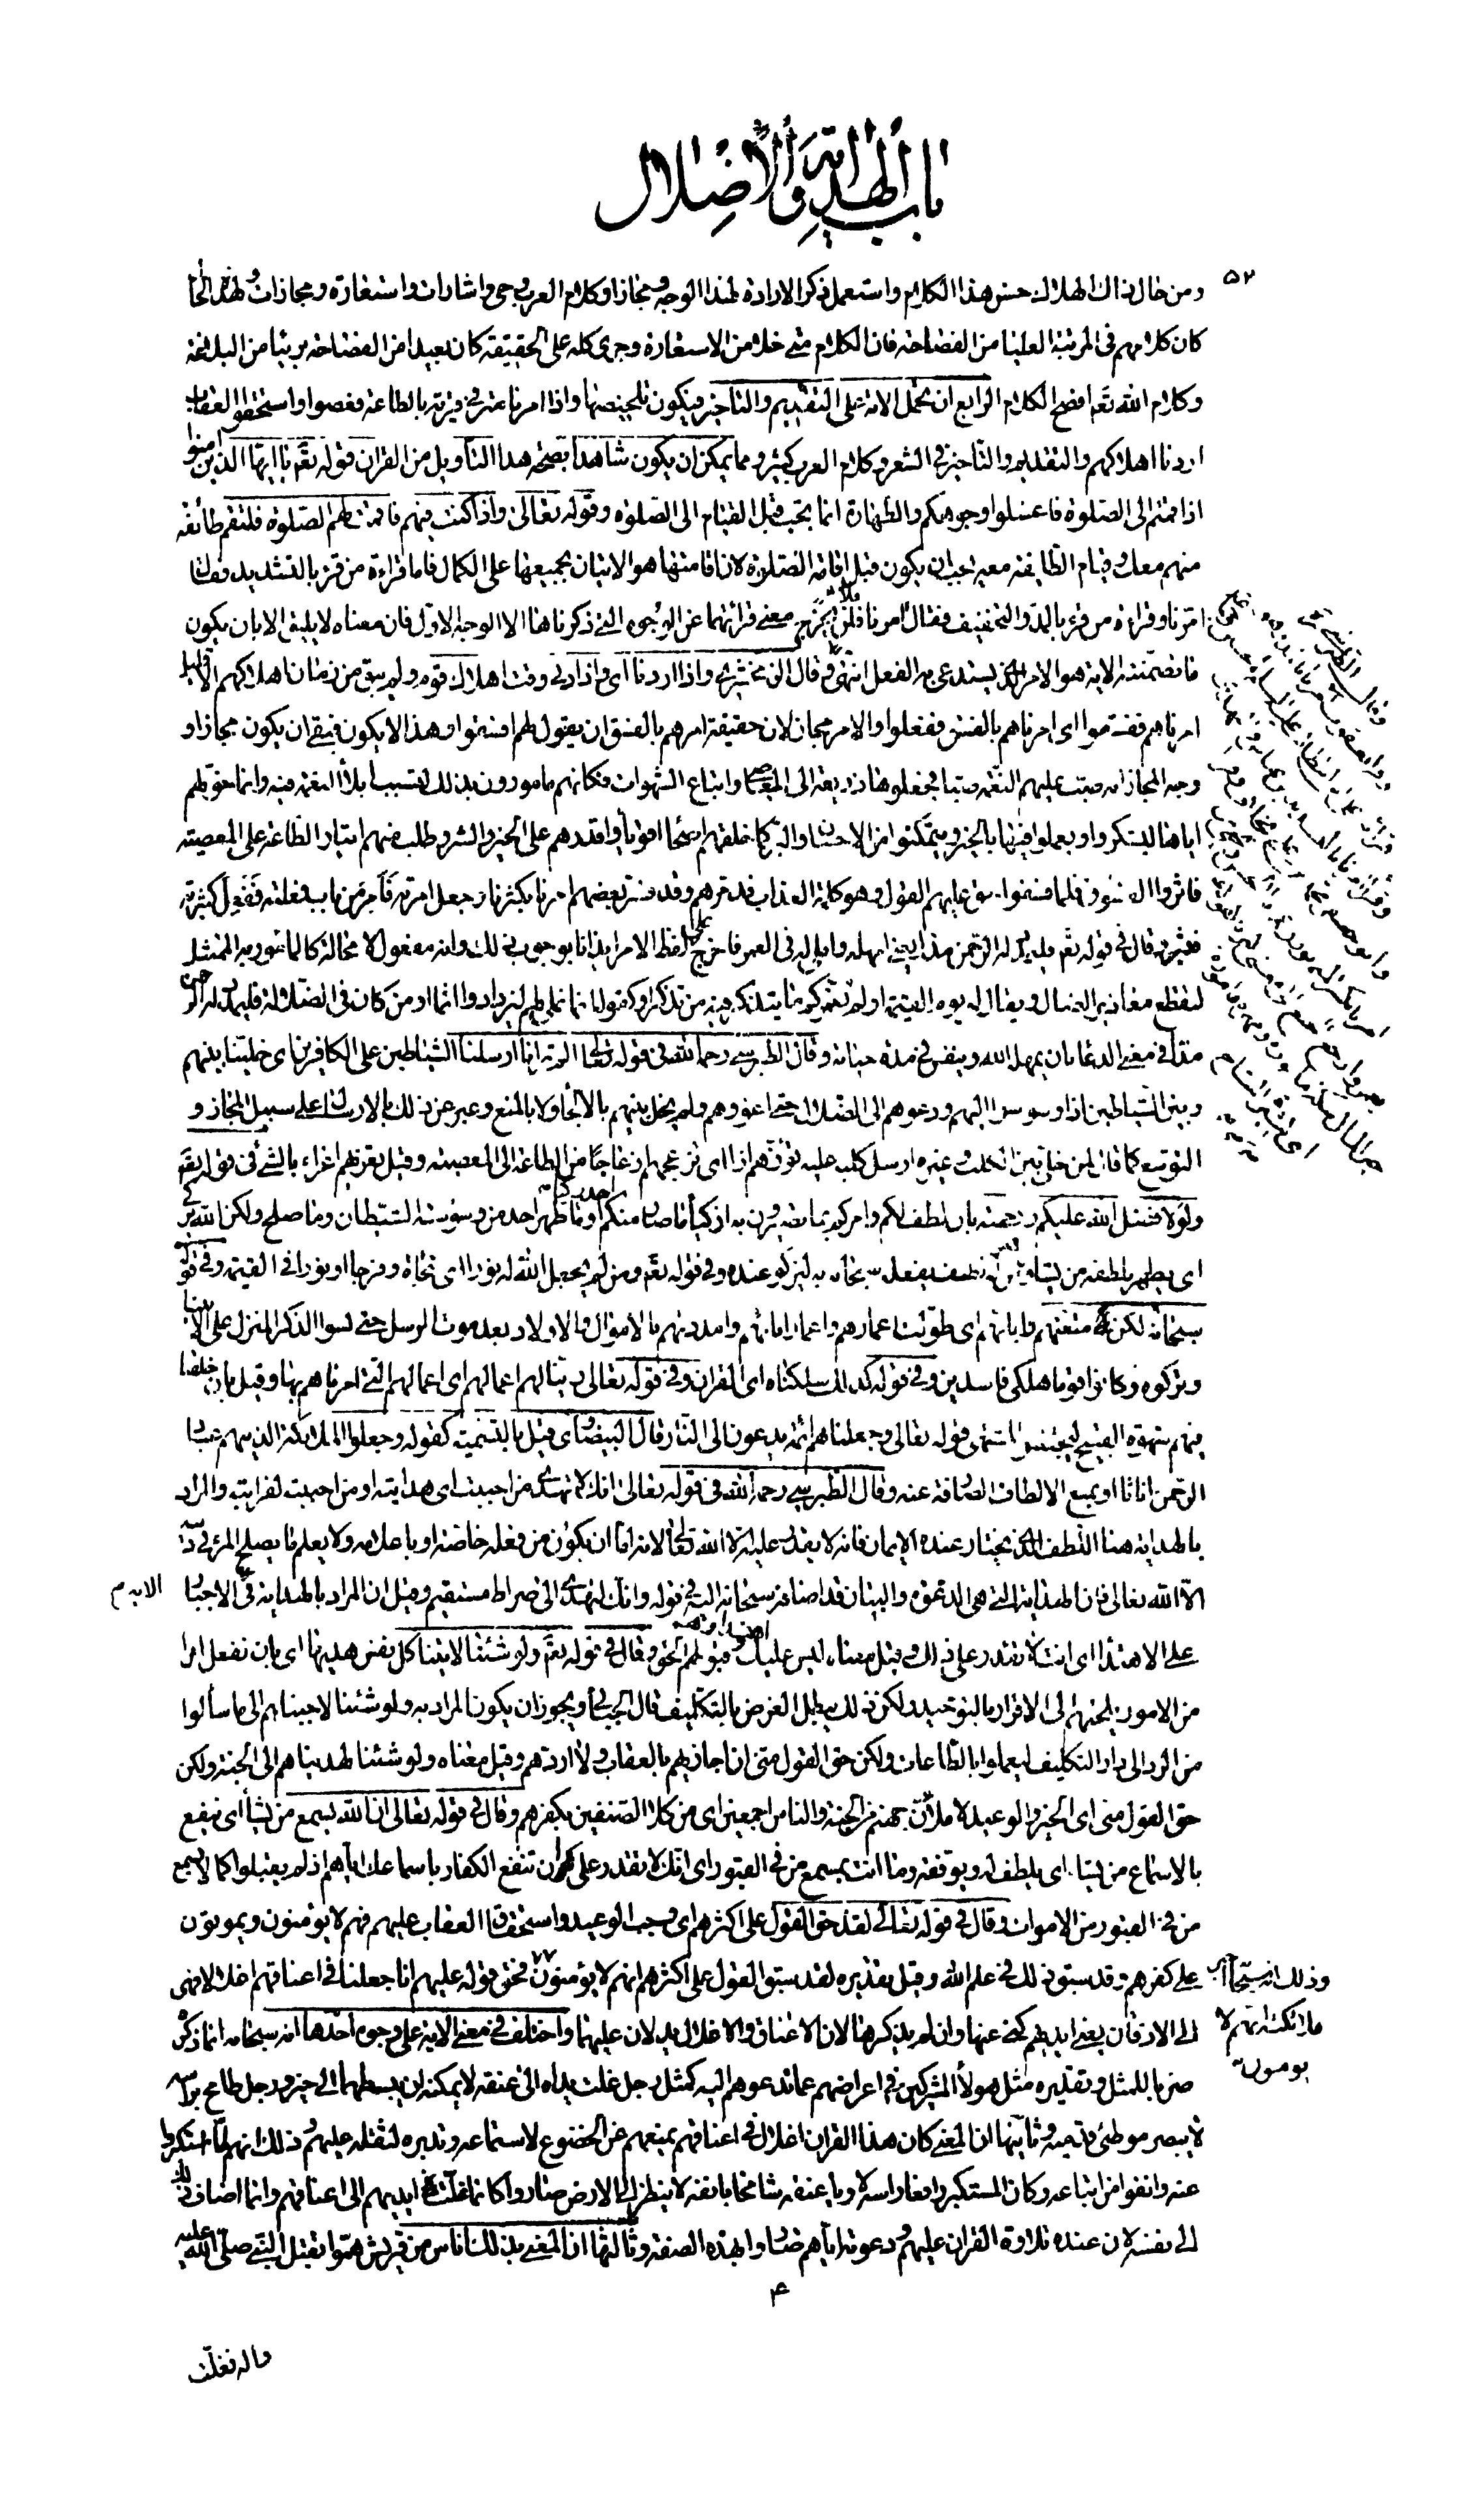 باب الهداية والاضلال
۵۲
ومن حال ذاك الهلاك حسن هذا الكلام واستعمل ذكر الارادة لهذا الوجه مجازا وكلام العرب وحى واشارات واستعارة ومجازات ولهذه الحال
كان كلامهم فى المرتبة العليا من الفصاحة فان الكلام متى خلا من الاستعارة وجرى كله على الحقيقة كان بعيدا من الفصاحة بريئا من البلاغة
وكلام الله تعم افصح الكلام الرابع ان تحمل الاية على التقديم والتاخير فيكون تلخيصها واذا امرنا مترفى قرية بالطاعة فعصوا واستحقوا العقاب
اردنا اهلاكهم والتقديم والتاخير فى الشعر وكلام العرب كثير ومما يمكن ان يكون شاهدا بصحة هذا التاويل من القران قوله تعم يا ايها الذين امنوا
اذا قمتم الى الصلوة فاغسلوا وجوهكم والطهارة انما تجب قبل القيام الى الصلوة وقوله تعالى واذا كنت فيهم فاقمت لهم الصلوة فلتقم طائفة
منهم معك وقيام الطايفة معه يجب ان يكون قبل اقامة الصلوة لان اقامتها هو الاتيان بجميعها على الكمال فاما قراءة من قرء بالتشديد فقال
امرنا وقراءة من قرء بالمد والتخفيف فقال امرنا فلن يخرج معنى قرائتهما عن الوجوه التى ذكرناها الا الوجه الاول فان معناه لا يليق الا بان يكون
ما تضمنته الاية هو الامر الذى يستدعى به الفعل انتهى وقال الزمخشرى واذا اردنا اى واذا دنى وقت اهلاك قوم ولم يبق من زمان اهلاكهم الا قليل
امرناهم ففسقوا اى امرناهم بالفسق ففعلوا والامر مجاز لان حقيقة امرهم بالفسق ان يقول لهم افسقوا وهذا لا يكون فبقى ان يكون مجازا و
وجه المجاز انه صبت عليهم النعمة صبا فجعلوها ذريعة الى المعاصى واتباع الشهوات فكانهم مامورون بذلك لتسبب ايلاء النعمة فيه وانما خولهم
اياها ليشكروا ويعملوا فيها بالخير ويتمكنوا من الاحسان والبر كما خلقهم اصحاء اقوياء واقدرهم على الخير والشر وطلب منهم ايثار الطاعة على المعصية
فاثروا الفسوق فلما فسقوا حق عليهم القول وهو كلمة العذاب فدمرهم وقد فسر بعضهم امرنا بكثرنا وجعل امرته فامر من باب فعلته ففعل كثبرته
فثبر وقال فى قوله تعم فليمدد له الرحمن مدا يعنى امهله واملى له فى العمر فاخرج على لفظ الامر ايذانا بوجوب ذلك وانه مفعول لا محالة كالمامور به الممتثل
لتقطع معاذير الضال ويقال له يوم القيمة اولم نعمركم ما يتذكر فيه من تذكر او كقوله انما نملى لهم ليزدادوا اثما او من كان فى الضلالة فليمدد له الرحمن
مدا فى معنى الدعاء بان يمهله الله وينفس فى مدة حياته وقال الطبرسى رحمه الله فى قوله تعالى الم تر انا ارسلنا الشياطين على الكافرين اى خلينا بينهم
وبين الشياطين اذا وسوسوا اليهم ودعوهم الى الضلال حتى اغووهم ولم يخل بينهم بالالجاء ولا بالمنع وعبر عن ذلك بالارسال على سبيل المجاز و
التوسع كما يقال لمن خلى بين الكلب وغيره ارسل كلبه عليه تؤزهم ازا اى تزعجهم ازعاجا من الطاعة الى المعصية وقيل تغريهم اغراء بالشئ فى قوله تعم
ولولا فضل الله عليكم ورحمته بان لطف لكم وامركم بما تصيرون به ازكياء ما صار منكم احد زكيا او ما طهر احد من وسوسة الشيطان وما صلح ولكن الله يزكى
اى يطهر بلطفه من يشاء وفى قوله تعم ومن لم يجعل الله له نورا اى نجاة وفرجا او نورا فى القيمة وفى قوله
سبحانه لكن متعتهم واباءهم اى طولت اعمارهم واعمار ابائهم وامددتهم بالاموال والاولاد بعد موت الرسل حتى نسوا الذكر المنزل على الانبياء
وتركوه وكانوا قوما هلكى فاسدين وفى قوله كذلك سلكناه اى القران وفى قوله تعالى زينا لهم اعمالهم اى اعمالهم التى امرناهم بها وقيل بان خلقنا
فيهم شهوة القبيح ليجتنبوا المشتهى قوله تعالى وجعلناهم ائمة يدعون الى النار قال البيضاوى قيل بالتسمية كقوله وجعلوا الملائكة الذين هم عباد
الرحمن اناثا او بمنع الالطاف الصارفة عنه وقال الطبرسى رحمه الله فى قوله تعالى انك لا تهدى من احببت اى هدايته او من احببت لقرابته والمراد
بالهداية هنا اللطف الذى يختار عنده الايمان فانه لا يقدر عليه الا الله تعالى لانه اما ان يكون من فعله خاصة او باعلامه ولا يعلم ما يصلح المرء فى دينه
الا الله تعالى فان الهداية التى هى الدعوة والبيان قد اضافه سبحانه اليه فى قوله وانك لتهدى الى صراط مستقيم وقيل ان المراد بالهداية فى الاية الاجبار
على الاهتداء اى انت لا تقدر على ذلك وقيل معناه ليس عليك اهتداؤهم وقبولهم الحق وقال فى قوله تعم ولو شئنا لاتينا كل نفس هديها اى بان نفعل امرا
من الامور يلجئهم الى الاقرار بالتوحيد ولكن ذلك يبطل الغرض بالتكليف قال الجبائى ويجوز ان يكون المراد به ولو شئنا لاجبناهم الى ما سألوا
من الرد الى دار التكليف ليعملوا بالطاعات ولكن حق القول منى ان اجازيهم بالعقاب ولا اردهم وقيل معناه ولو شئنا لهديناهم الى الجنة ولكن
حق القول منى اى الخبر والوعيد لاملان جهنم من الجنة والناس اجمعين اى من كلا الصنفين بكفرهم وقال فى قوله تعالى ان الله يسمع من يشاء اى ينفع
بالاسماع من يشاء اى يلطف له ويوفقه وما انت بمسمع من فى القبور اى انك لا تقدر على ان تنفع الكفار باسماعك اياهم اذ لم يقبلوا كما لا يسمع
من فى القبور من الاموات وقال فى قوله تعالى لقد حق القول على اكثرهم اى وجب الوعيد واستحقاق العقاب عليهم فهم لا يؤمنون ويموتون
على كفرهم وقد سبق ذلك فى علم الله وقيل تقديره لقد سبق القول على اكثرهم انهم لا يؤمنون فحق قوله عليهم انا جعلنا فى اعناقهم اغلالا فهى
الى الاذقان يعنى ايديهم كنى عنها وان لم يذكرها لان الاعناق والاغلال يدلان عليها واختلف فى معنى الاية على وجوه احدها انه سبحانه انما ذكره
ضربا للمثل وتقديره مثل هؤلاء المشركين فى اعراضهم عما تدعوهم اليه كمثل رجل غلت يداه الى عنقه لا يمكنه ان يبسطهما الى خير ورجل طامح براسه
لا يبصر موطئ قدميه وثانيها ان المعنى كان هذا القران اغلال فى اعناقهم يمنعهم عن الخضوع لاستماعه وتدبره لثقله عليهم وذلك انهم لما استكبروا
عنه وانفوا من اتباعه وكان المستكبر رافعا راسه لاويا عنقه شامخا بانفه لا ينظر الى الارض صاروا كانما غلت ايديهم الى اعناقهم وانما اضاف ذلك
الى نفسه لان عند تلاوة القران عليهم ودعوته اياهم صاروا بهذه الصفة وثالثها ان المعنى بذلك ناس من قريش هموا بقتل النبى صلى الله عليه
وذلك انه سبحانه
ملائكته انهم لا
يومنون
۴
واله فغلت